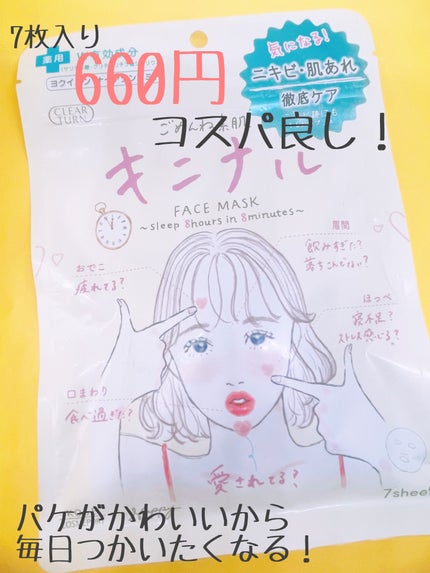 7枚入り
660円
コスパ良し！
薬用
W有効成分
気になる！
ニキビ・肌あれ
徹底ケア
CLEAR
TURN
ごめんね素肌
キニナル
FACE MASK
～sleep 8hours in 8minutes～
眉間
飲みすぎた？
落ちこんでない？
おでこ
疲れてる？
ほっぺ
寝不足？
ストレス感じる？
口まわり
食べ過ぎた？
愛されてる？
7sheet
パケがかわいいから
毎日つかいたくなる！